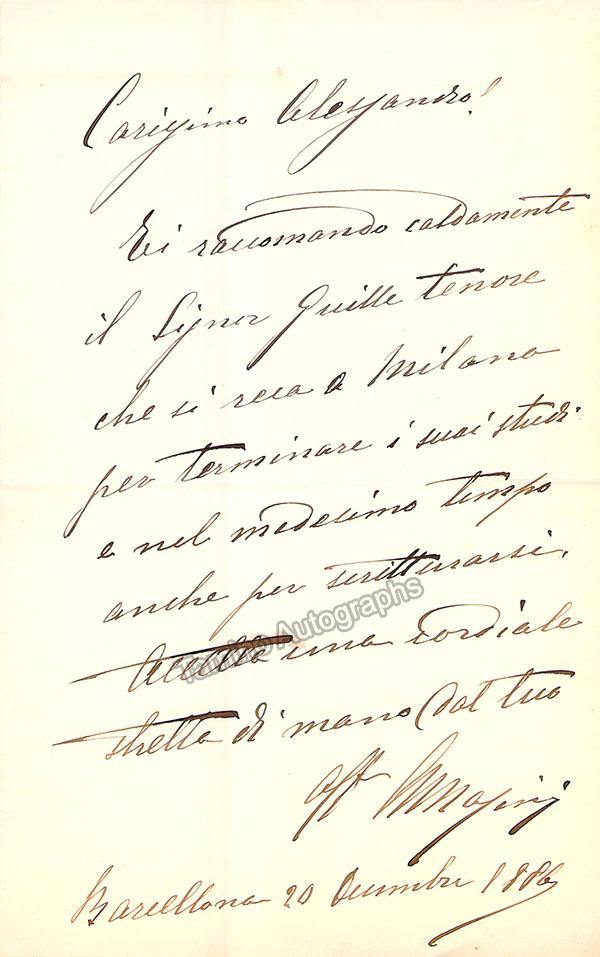 Carissimo Alessandro!
Ti raccomando caldamente
il Signor Guille tenore
che si reca a Milano
per terminare i suoi studi
e nel medesimo tempo
anche per scritturarsi.
Accetta una cordiale
stretta di mano dal tuo
aff AMasini
Barcellona 20 Decembre 1886
Tamino Autographs